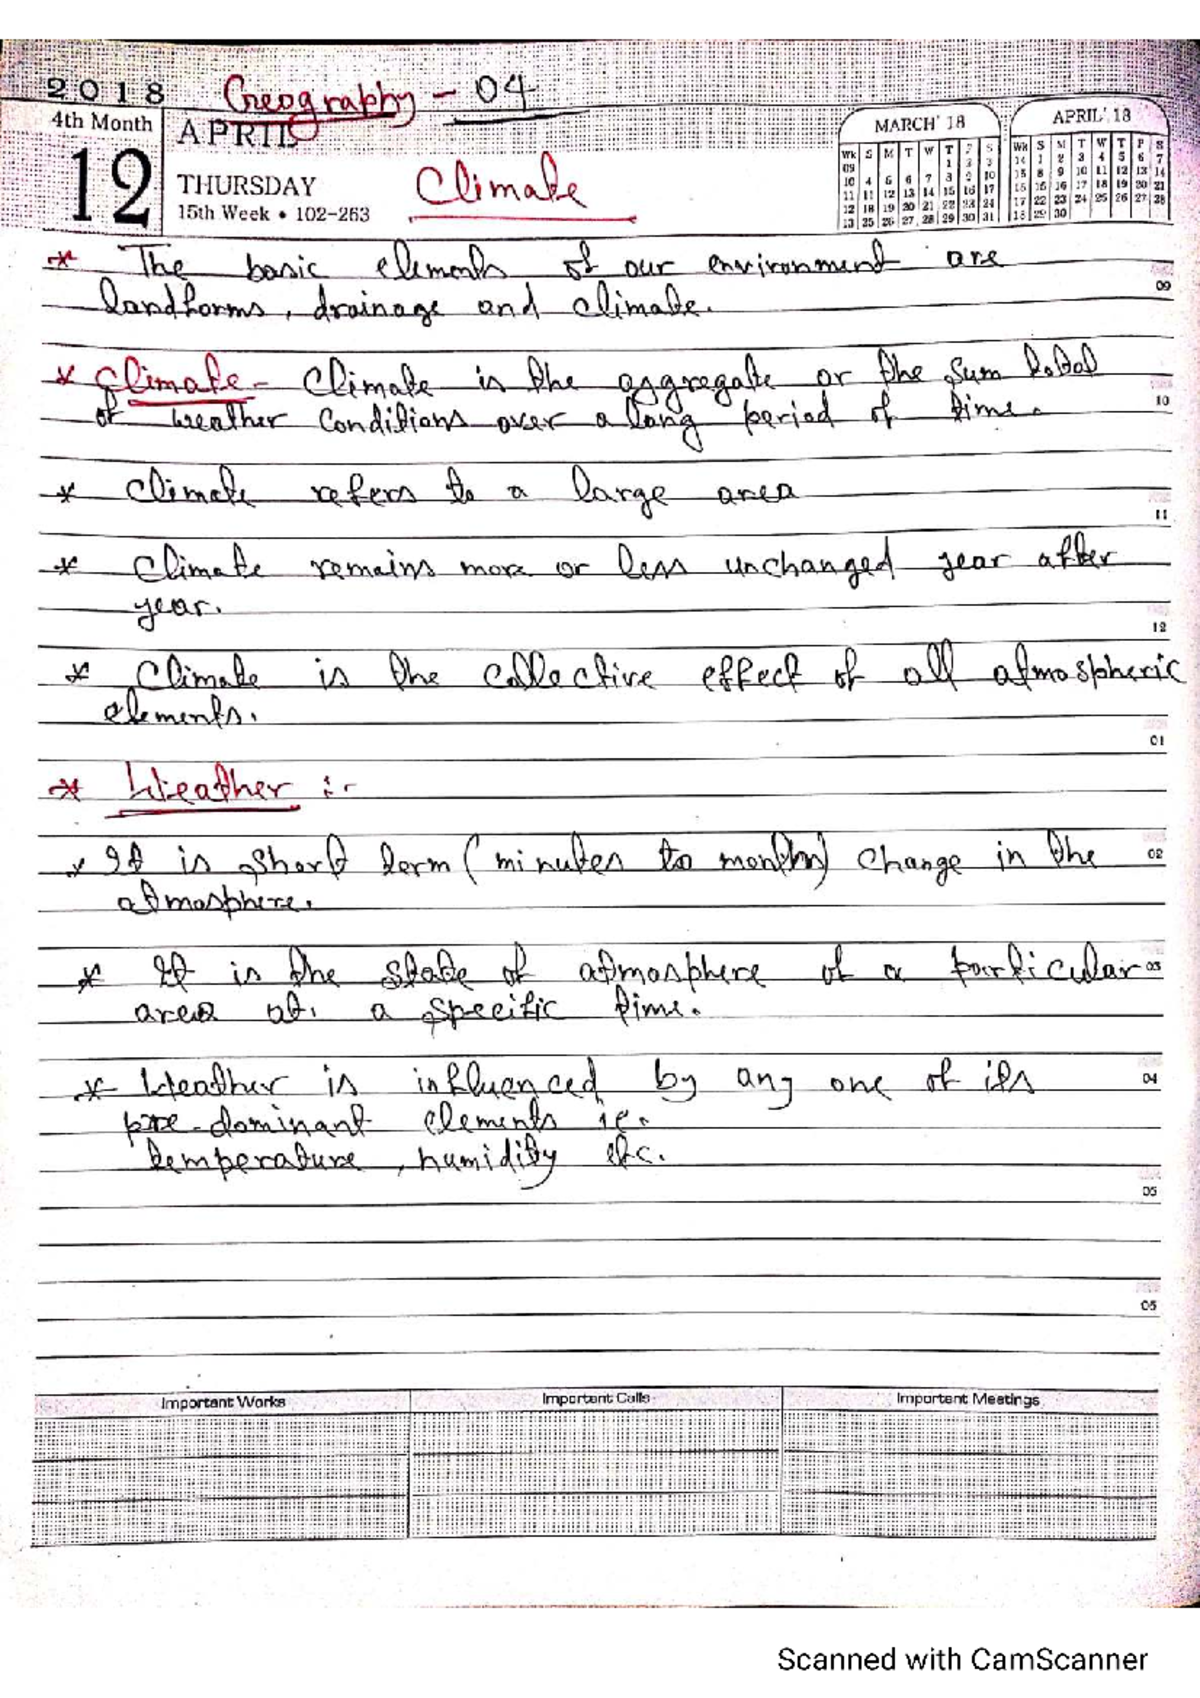 2018 Geography - 04
4th Month APRIL
12
THURSDAY
15th Week • 102-263
Climate
MARCH' 18
Wk S M T W T F S
09 1 2 3
10 4 5 6 7 8 9 10
11 11 12 13 14 15 16 17
12 18 19 20 21 22 23 24
13 25 26 27 28 29 30 31
APRIL' 18
Wk S M T W T F S
14 1 2 3 4 5 6 7
15 8 9 10 11 12 13 14
15 16 17 18 19 20 21
17 22 23 24 25 26 27 28
18 29 30
* The basic elements of our environment are
09
landforms, drainage and climate.
* Climate - Climate is the aggregate or the sum total
10
of weather conditions over a long period of time.
* Climate refers to a large area
11
* Climate remains more or less unchanged year after
year.
12
* Climate is the collective effect of all atmospheric
elements.
01
* Weather :-
* It is short term (minutes to months) change in the
02
atmosphere.
* It is the state of atmosphere of a particular
03
area at. a specific time.
* Weather is influenced by any one of its
04
pre-dominant elements ie.
temperature, humidity etc.
05
06
Important Works
Important Calls
Important Meetings
Scanned with CamScanner